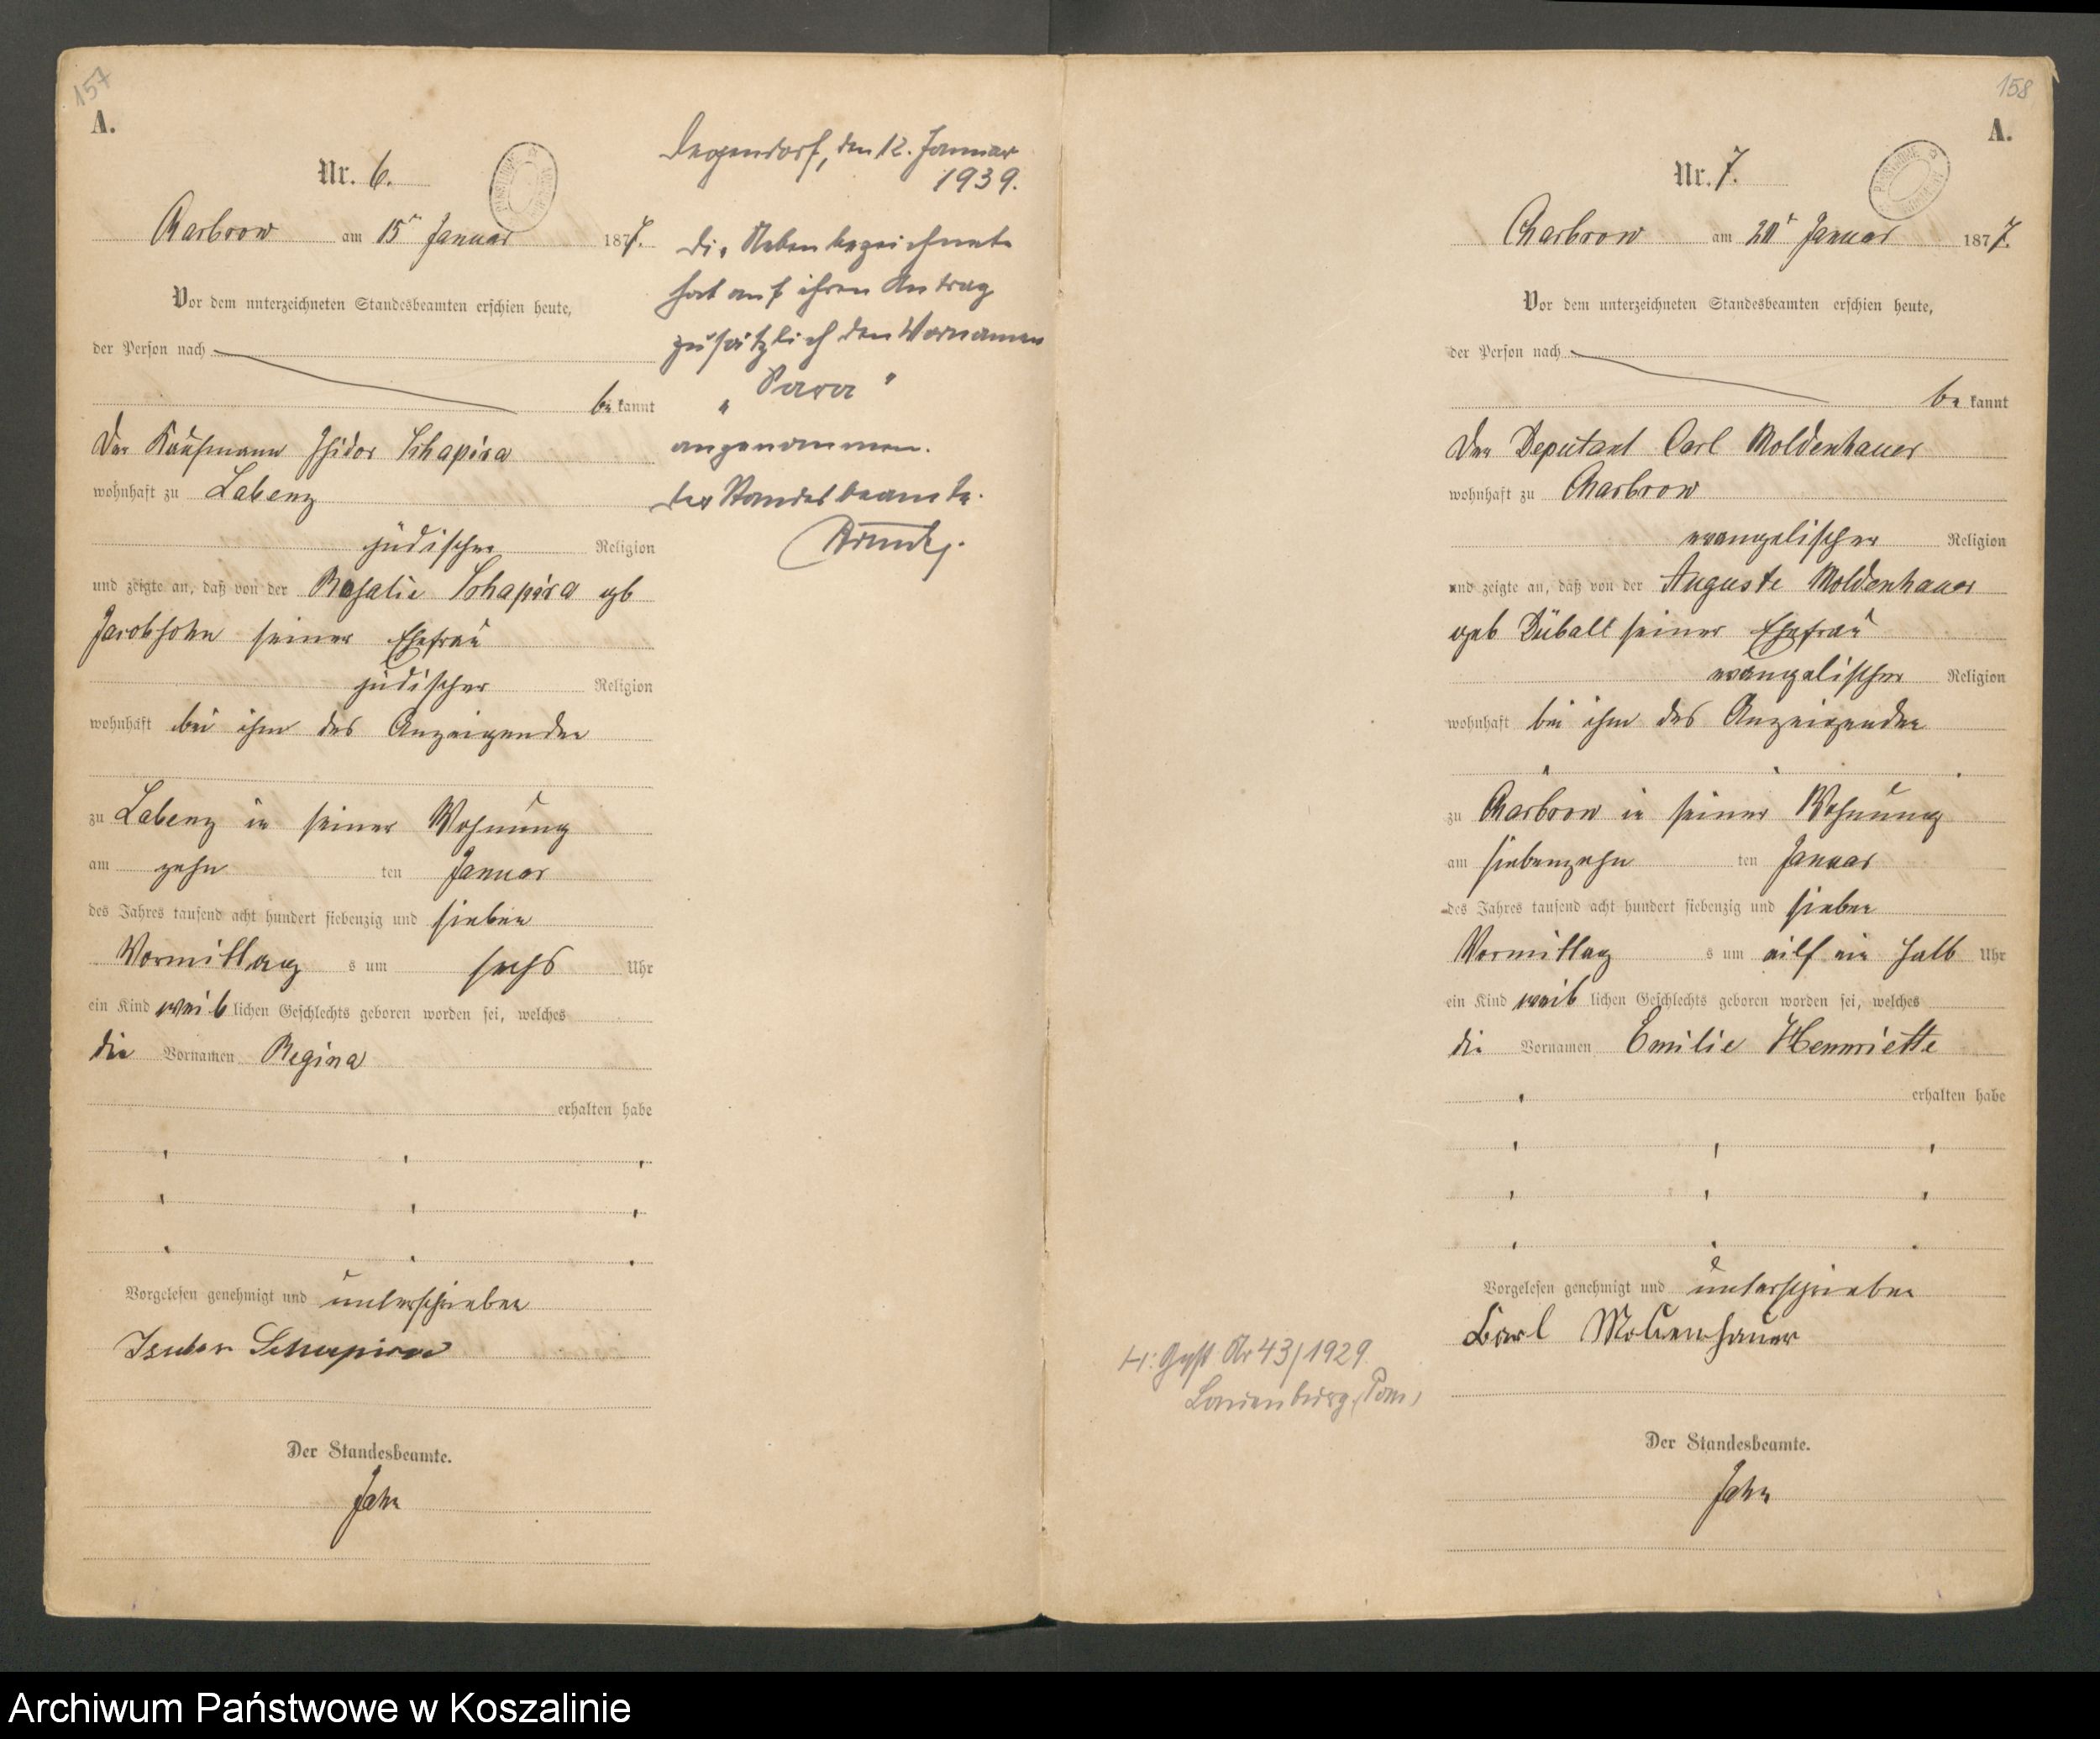 157
A.
Nr. 6.
Charbrow am 15ten Januar 1877.
Vor dem unterzeichneten Standesbeamten erschien heute,
der Person nach
be kannt
Der Kaufmann Isidor Schapira
wohnhaft zu Labenz
jüdischer Religion
und zeigte an, daß von der Rosalie Schapira geb
Jacobsohn seiner Ehefrau
jüdischer Religion
wohnhaft bei ihm des Anzeigenden
zu Labenz in seiner Wohnung
am zehn ten Januar
des Jahres tausend acht hundert siebenzig und sieben
Vormittag s um sechs Uhr
ein Kind weib lichen Geschlechts geboren worden sei, welches
die Vornamen Regina
erhalten habe
Vorgelesen genehmigt und unterschrieben
Isidor Schapira
Der Standesbeamte.
Jahn
den 12. Januar
1939.
Die Nebenbezeichnete
hat auf ihren Antrag
zusätzlich den Vornamen
„Sara"
angenommen.
Der Standesbeamte.
158
A.
Nr. 7.
Charbrow am 20t Januar 1877.
Vor dem unterzeichneten Standesbeamten erschien heute,
der Person nach
be kannt
Der Deputant Carl Moldenhauer
wohnhaft zu Charbrow
evangelischer Religion
und zeigte an, daß von der Auguste Moldenhauer
geb Düball seiner Ehefrau
evangelischer Religion
wohnhaft bei ihm des Anzeigenden
zu Charbrow in seiner Wohnung
am siebenzehn ten Januar
des Jahres tausend acht hundert siebenzig und sieben
Vormittag s um eilf ein halb Uhr
ein Kind weib lichen Geschlechts geboren worden sei, welches
die Vornamen Emilie Hennriette
erhalten habe
Vorgelesen genehmigt und unterschrieben
Carl Moldenhauer
Der Standesbeamte.
Jahn
Nr 43/1929
Lauenburg, Pom,
Archiwum Państwowe w Koszalinie